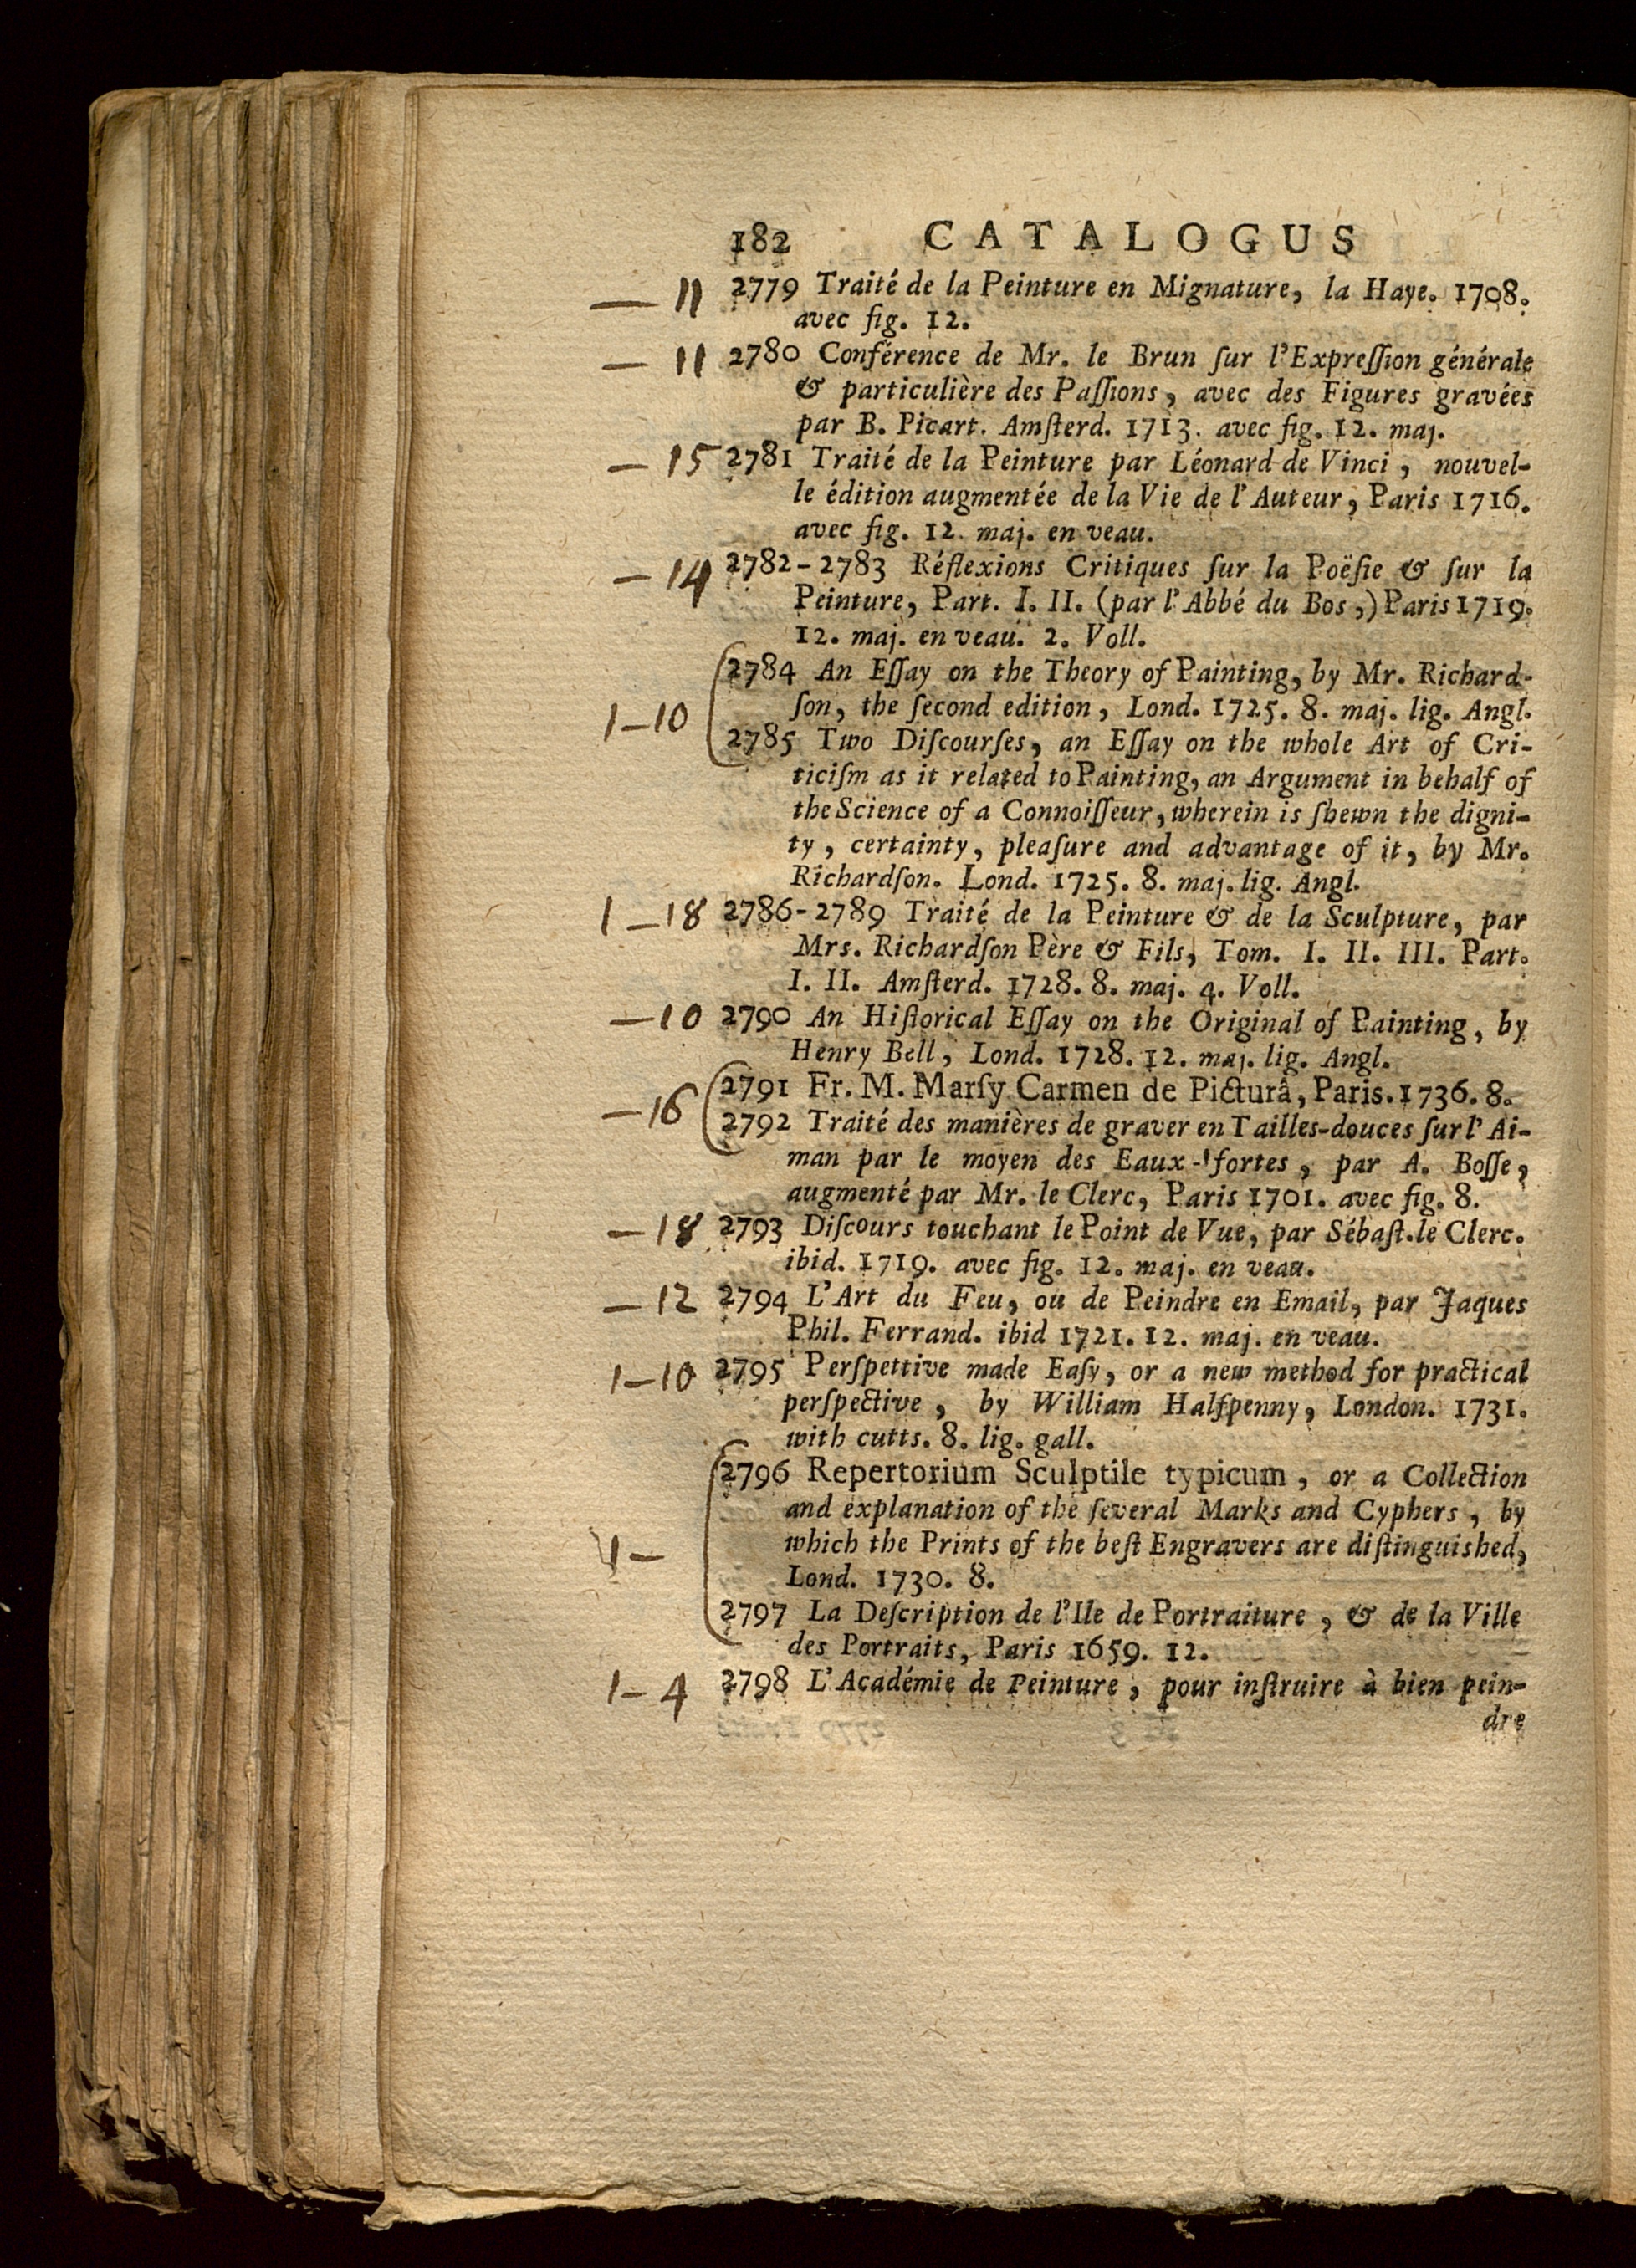 182 CATALOGUS
— 11 2779 Traité de la Peinture en Mignature, la Haye. 1708.
avec fig. 12.
— 11 2780 Conférence de Mr. le Brun ſur l'Expreſſion générale
& particulière des Paſſions, avec des Figures gravées
par B. Picart. Amſterd. 1713. avec fig. 12. maj.
— 15 2781 Traité de la Peinture par Léonard de Vinci, nouvel-
le édition augmentée de la Vie de l'Auteur, Paris 1716.
avec fig. 12. maj. en veau.
— 14 2782-2783 Réflexions Critiques ſur la Poëſie & ſur la
Peinture, Part. I. II. (par l'Abbé du Bos,) Paris 1719.
12. maj. en veau. 2. Voll.
2784 An Eſſay on the Theory of Painting, by Mr. Richard-
1—10 ſon, the ſecond edition, Lond. 1725. 8. maj. lig. Angl.
2785 Two Diſcourſes, an Eſſay on the whole Art of Cri-
ticiſm as it related to Painting, an Argument in behalf of
the Science of a Connoiſſeur, wherein is ſhewn the digni-
ty, certainty, pleaſure and advantage of it, by Mr.
Richardſon. Lond. 1725. 8. maj. lig. Angl.
1—18 2786-2789 Traité de la Peinture & de la Sculpture, par
Mrs. Richardſon Père & Fils, Tom. I. II. III. Part.
I. II. Amſterd. 1728. 8. maj. 4. Voll.
—10 2790 An Hiſtorical Eſſay on the Original of Painting, by
Henry Bell, Lond. 1728. 12. maj. lig. Angl.
2791 Fr. M. Marſy Carmen de Picturâ, Paris. 1736. 8.
—16 2792 Traité des manières de graver en Tailles-douces ſur l'Ai-
man par le moyen des Eaux-fortes, par A. Boſſe,
augmenté par Mr. le Clerc, Paris 1701. avec fig. 8.
—18 2793 Diſcours touchant le Point de Vue, par Sébaſt. le Clerc.
ibid. 1719. avec fig. 12. maj. en veau.
—12 2794 L'Art du Feu, ou de Peindre en Email, par Jaques
Phil. Ferrand. ibid 1721. 12. maj. en veau.
1—10 2795 Perſpettive made Eaſy, or a new method for practical
perſpective, by William Halfpenny, London. 1731.
with cutts. 8. lig. gall.
2796 Repertorium Sculptile typicum, or a Collection
and explanation of the ſeveral Marks and Cyphers, by
1— which the Prints of the beſt Engravers are diſtinguished,
Lond. 1730. 8.
2797 La Deſcription de l'Ile de Portraiture, & de la Ville
des Portraits, Paris 1659. 12.
1—4 2798 L'Académie de Peinture, pour inſtruire à bien pein-
dre